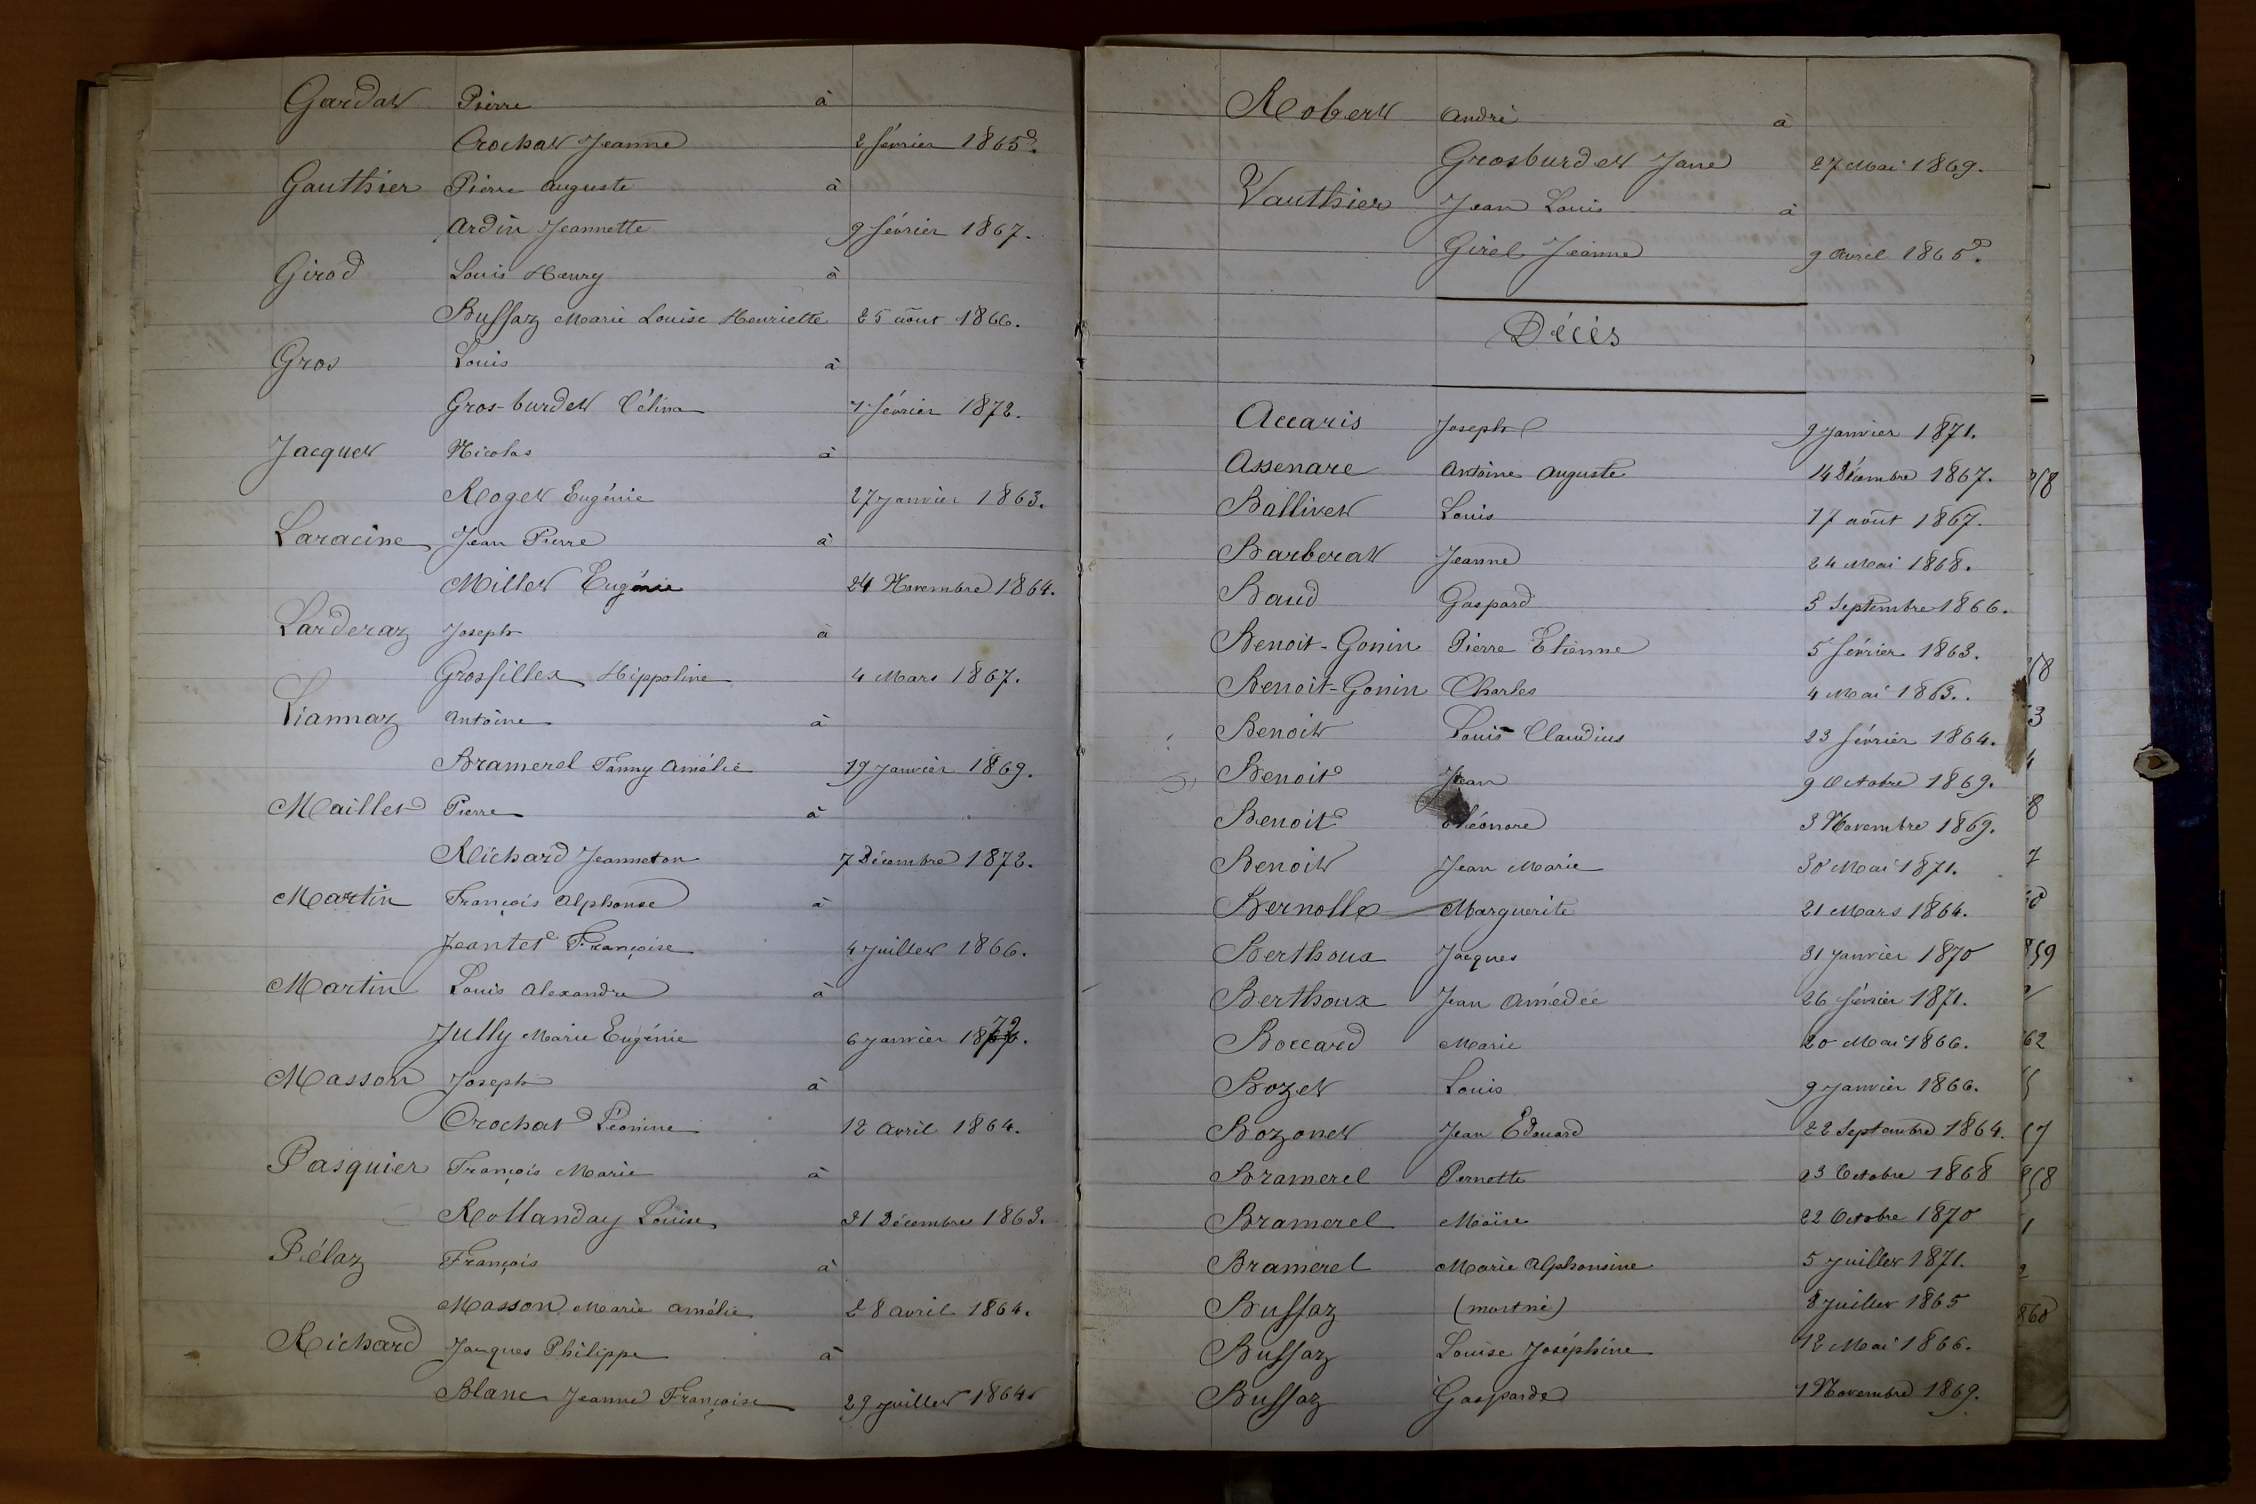 Gardat Pierre à
Crochat Jeanne 2 février 1865.
Gauthier Pierre Auguste à
Ardin Jeannette 9 février 1867.
Girod Louis Henry à
Buffaz Marie Louise Henriette 25 août 1866.
Gros Louis à
Gros-burdet Célina février 1872.
Jacquet Nicolas à
Roget Eugénie 27 janvier 1863.
Laracine Jean Pierre à
Millet Eugénie 24 Novembre 1864.
Larderaz Joseph à
Grosfillex Hippoline 4 Mars 1867.
Liannaz Antoine à
Bramerel Fanny Amélie 19 janvier 1869.
Maillet Pierre à
Richard Jeanneton 7 Décembre 1872.
Martin François Alphonse à
Jeantet Françoise 4 juillet 1866.
Martin Louis Alexandre à
Jully Marie Eugénie 6 janvier 1872.
Masson Joseph à
Crochat Léonine 12 Avril 1864.
Pasquier François Marie à
Rollanday Louise 31 Décembre 1863.
Pélaz François à
Masson Marie Amélie 28 avril 1864.
Richard Jacques Philippe à
Blanc Jeanne Françoise 29 juillet 1864
Robert André à
Grosburdet Jane 27 Mai 1869.
Vauthier Jean Louis à
Girel Jeanne 9 Avril 1865.
Décès
Accaris Joseph 9 janvier 1871.
Assenare Antoine Auguste 14 Décembre 1867.
Ballivet Louis 17 août 1867.
Barberat Jeanne 24 Mai 1868.
Baud Gaspard 5 Septembre 1866.
Benoit-Gonin Pierre Etienne 5 février 1863.
Benoit-Gonin Charles 4 Mai 1863.
Benoit Louis Claudius 23 février 1864.
Benoit Jean 9 Octobre 1869.
Benoit Eléonore 3 Novembre 1869.
Benoit Jean Marie 30 Mai 1871.
Bernolle Marguerite 21 Mars 1864.
Berthoux Jacques 31 janvier 1870
Berthoux Jean Amédée 26 février 1871.
Boccard Marie 20 Mai 1866.
Bozet Louis 9 janvier 1866.
Bozonet Jean Edouard 22 Septembre 1864.
Bramerel Pernette 23 Octobre 1868
Bramerel Moïse 22 Octobre 1870
Bramerel Marie Alphonsine 5 juillet 1871.
Buffaz (mort né) 8 juillet 1865
Buffaz Louise Joséphine 12 Mai 1866.
Buffaz Gasparde 1 Novembre 1869.